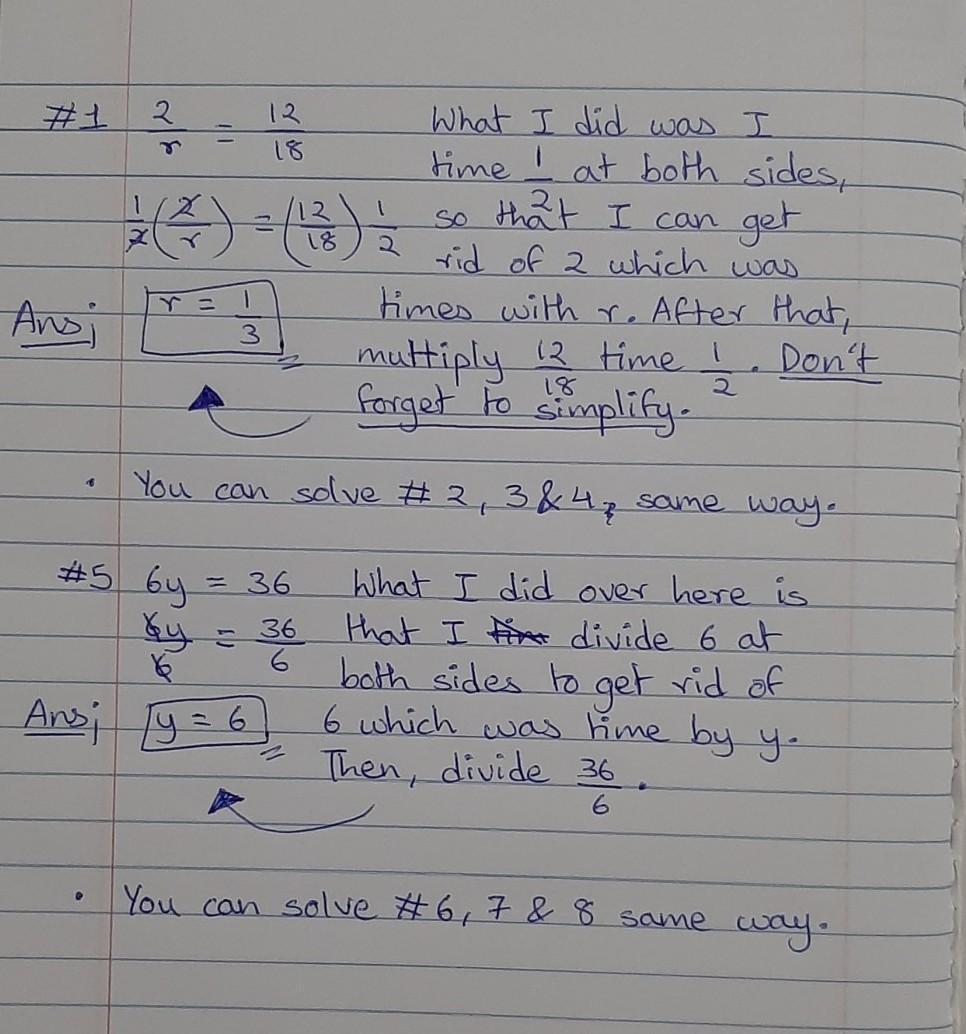 #1 2/r = 12/18 What I did was I
time 1/2 at both sides,
1/2 (2/r) = (12/18) 1/2 so that I can get
rid of 2 which was
Ans; r = 1/3 times with r. After that,
multiply 12/18 time 1/2. Don't
forget to simplify.
• You can solve # 2, 3 & 4, same way.
#5 6y = 36 What I did over here is
6y/6 = 36/6 that I time divide 6 at
both sides to get rid of
Ans; y = 6 6 which was time by y.
Then, divide 36/6.
• You can solve #6, 7 & 8 same way.